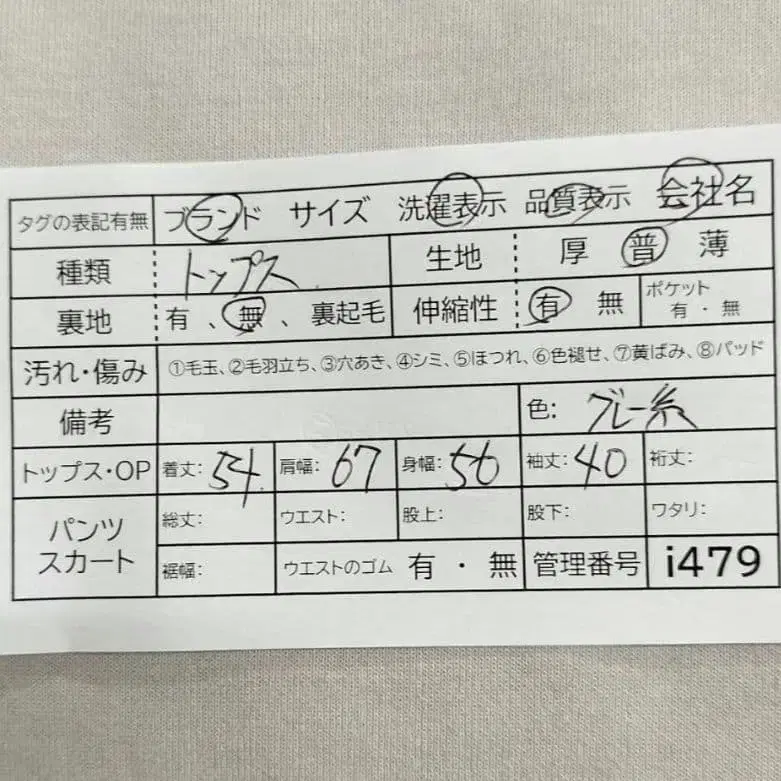 タグの表記有無 ブランド サイズ 洗濯表示 品質表示 会社名
種類 トップス 生地 厚 普 薄
裏地 有 、無 、裏起毛 伸縮性 有 無 ポケット 有・無
汚れ・傷み ①毛玉、②毛羽立ち、③穴あき、④シミ、⑤ほつれ、⑥色褪せ、⑦黄ばみ、⑧パッド
備考 色: グレー系
トップス・OP 着丈: 54 肩幅: 67 身幅: 56 袖丈: 40 裄丈:
パンツ スカート 総丈: ウエスト: 股上: 股下: ワタリ:
裾幅: ウエストのゴム 有 ・ 無 管理番号 i479